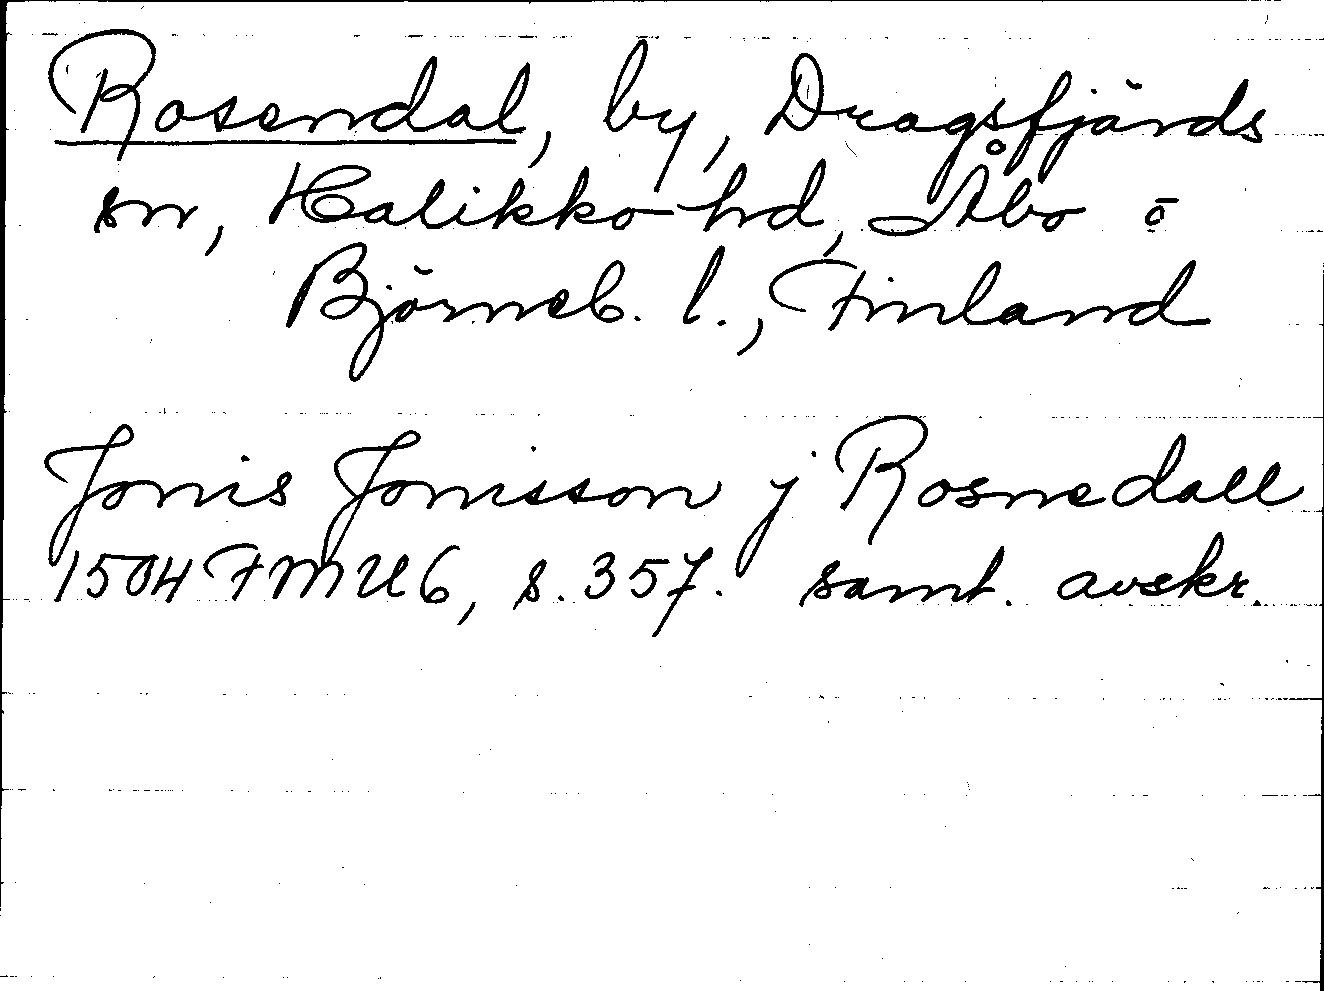 Rosendal, by, Dragsfjärds
sn, Halikko hd, Åbo o
Björneb. l., Finland
Jönis Jönisson j Rosnedall
1504 FMU 6, s. 357. samt. avskr.